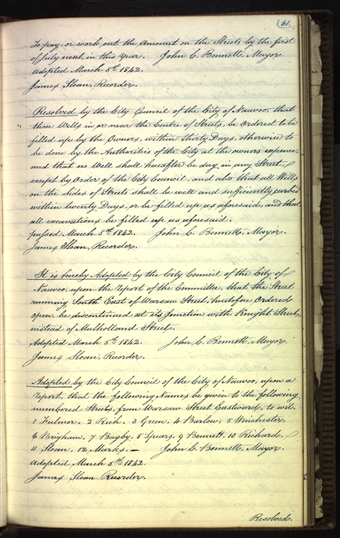 61.
To pay, or work out the amount on the Streets by the first
of July next, in this year. John C. Bennett, Mayor.
Adopted March 5th 1842.
James Sloan, Recorder.
Resolved by the City Council of the City of Nauvoo, that
those Wells in or near the Centre of Streets, be ordered to be
filled up by the Owners, within thirty Days, otherwise to
be done by the Authorities of the City at the owners expense,
and that no Well shall hereafter be dug in any Street,
except by Order of the City Council, and also that all Wells
on the sides of Streets shall be well and sufficiently curbed
within twenty Days, or be filled up as aforesaid, and that
all excavations be filled up as aforesaid.
passed March 5th 1842. John C. Bennett, Mayor.
James Sloan, Recorder.
It is hereby Adopted by the City Council of the City of
Nauvoo, upon the report of the Committee, that the Street
running South East of Warsaw Street, heretofore Ordered
open, be discontinued at its junction with Knight Street,
instead of Mulholland Street.
Adopted March 5th 1842. John C. Bennett, Mayor.
James Sloan, Recorder.
Adopted by the City Council of the City of Nauvoo, upon a
report, that the following Names be given to the following
numbered Streets, from Warsaw Street Eastward, to wit,
1 Fulmer. 2 Rich. 3 Green. 4 Barlow. 5 Winchester.
6 Brigham. 7 Bagby. 8 Spears. 9 Bennett. 10 Richards.
11 Sloan. 12 Marks. — John C. Bennett, Mayor.
Adopted March 5th 1842.
James Sloan Recorder.
Resolved.